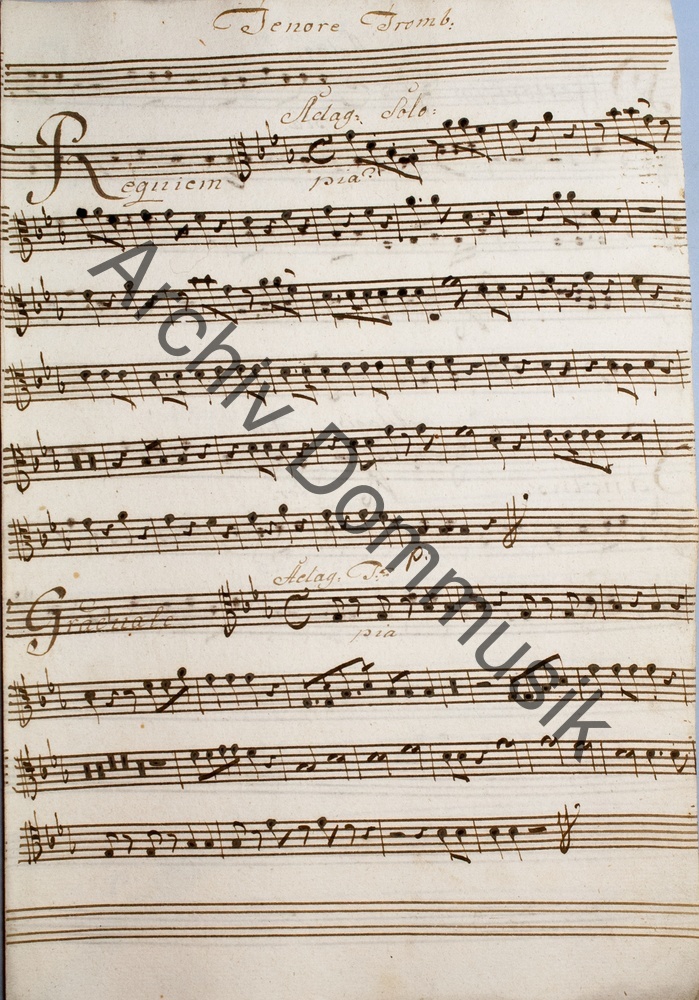 Tenore Tromb:
Adag: Solo:
Requiem
pia:
p:
Adag: T:
Graduale
pia
Archiv Dommusik